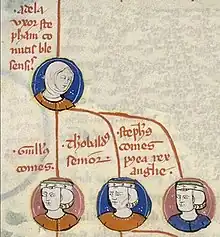 ·adela
uxor ste
phani co
mitis ble
sensis·
·Guill's
comes·
·Thobald'
senior·
·steph's
comes
postea rex
anglie·